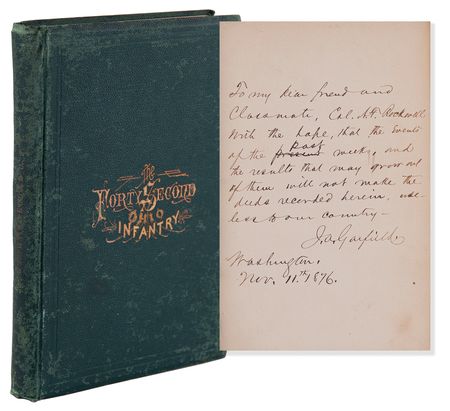 The
Forty Second
Ohio
Infantry.
To my dear friend and
Classmate, Col. A.F. Rockwell
With the hope, that the events
of the past
present week, and
the results that may grow out
of them will not make the
deeds recorded herein, use-
less to our country—
J.A. Garfield.
Washington.
Nov. 11th 1876.